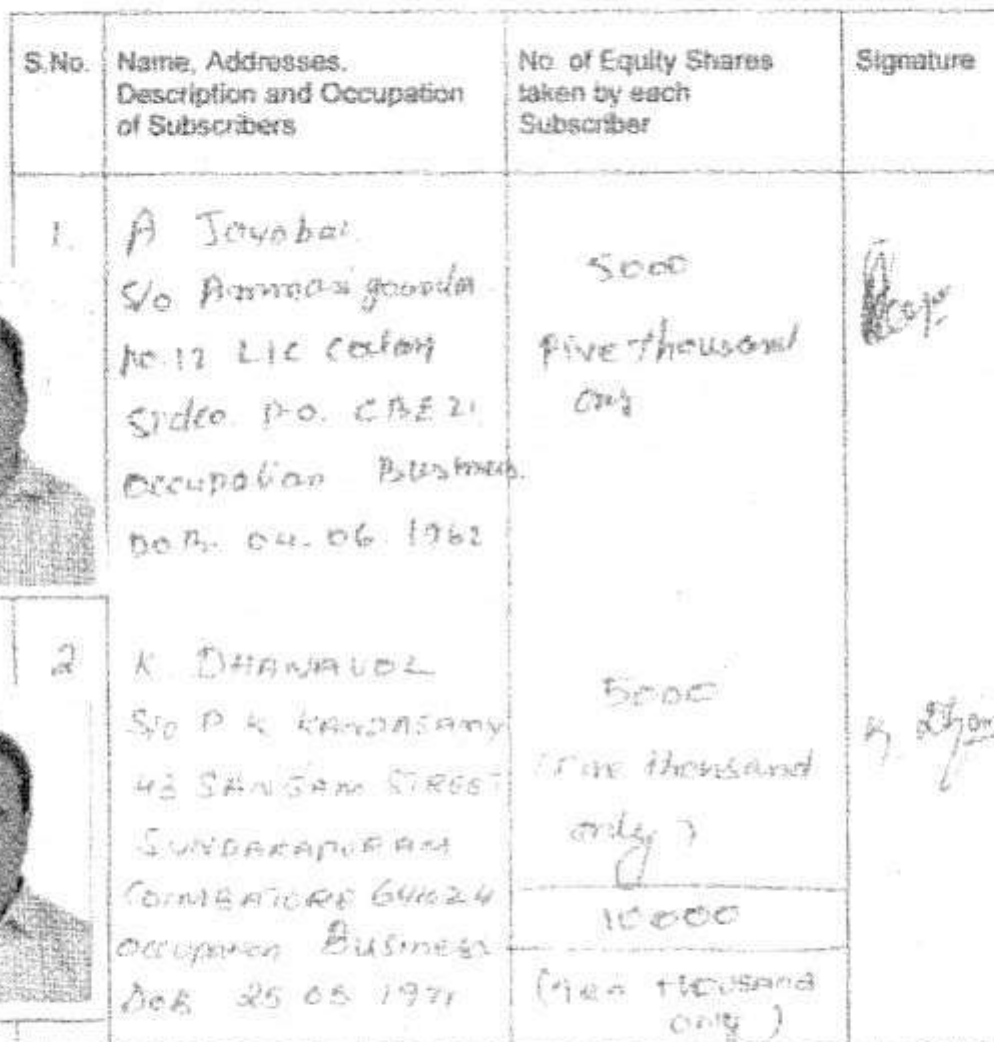 S.No.
Name, Addresses.
Description and Occupation
of Subscribers
No. of Equity Shares
taken by each
Subscriber
Signature
1.
A
S/o
No. 17 LIC
Sidco P.O. CBE 21
Occupation Business.
DOB. 04.06.1962
5000
Five thousand
only
2
K DHANAVEL
S/o P K KANDASAMY
43 SANGAM STREET
SUNDARAPURAM
COIMBATORE 641024
Occupation Business
DOB 25 05 1971
5000
(Five thousand
only)
10000
(Ten thousand
only)
K.